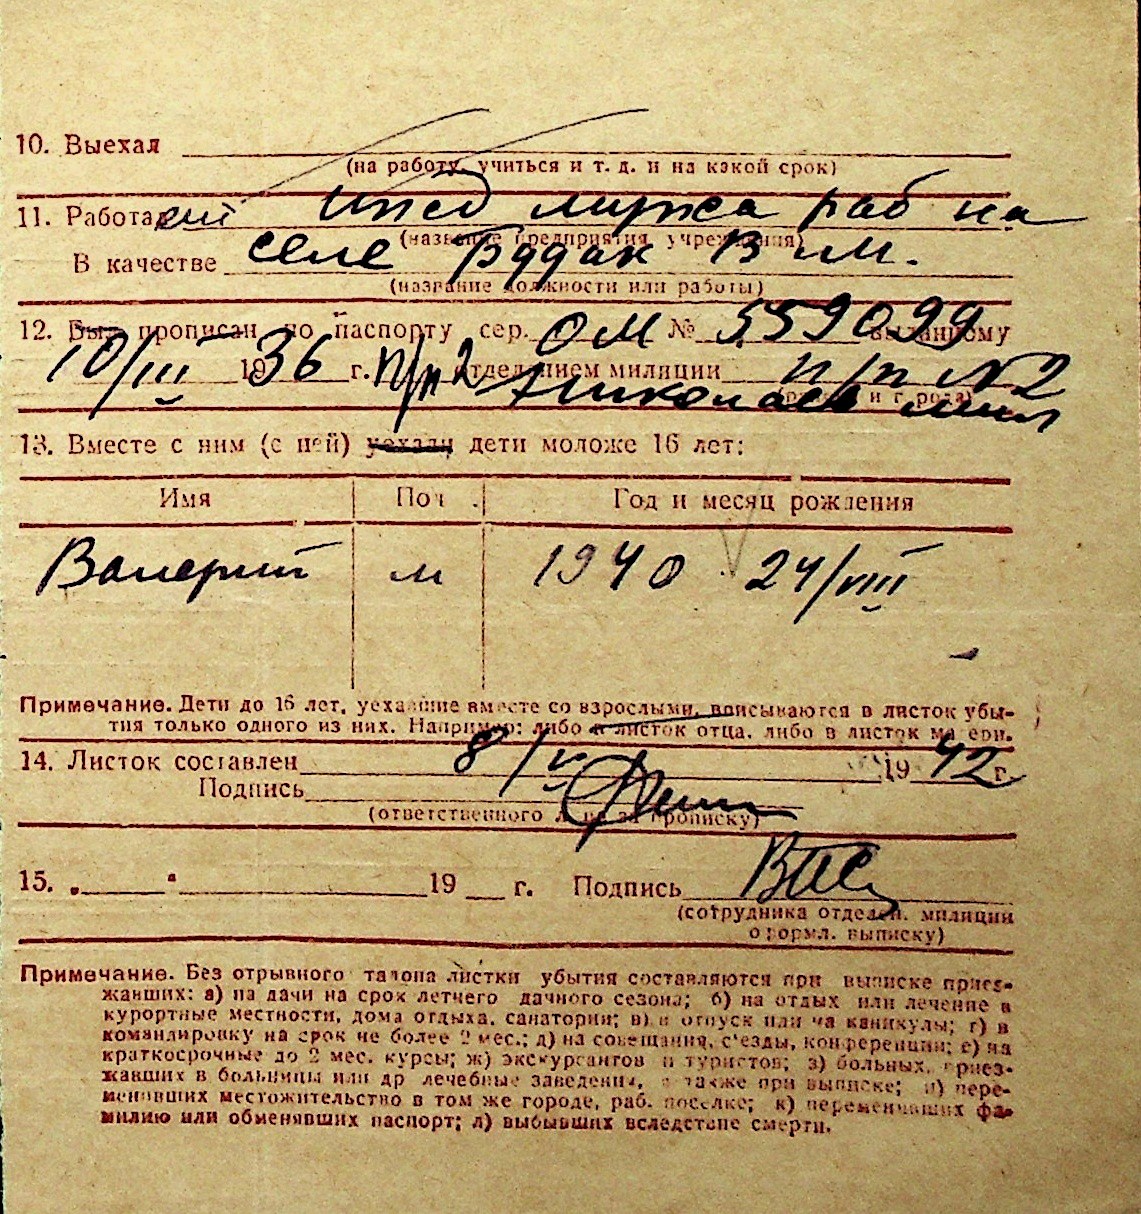 10. Выехал
(на работу, учиться и т. д. и на какой срок)
11. Работа ижд мужа раб на
(название предприятия, учреждения)
В качестве селе Будак В им.
(название должности или работы)
12. Был прописан по паспорту сер. ОМ № 559099 выданному
10/III 1936 г. п/п 2 отделением милиции п/п №2
Николаев мил
13. Вместе с ним (с ней) уехали дети моложе 16 лет:
Имя Пол Год и месяц рождения
Валерий м 1940 24/VIII
Примечание. Дети до 16 лет, уехавшие вместе со взрослыми, вписываются в листок убы-
тия только одного из них. Например: либо в листок отца, либо в листок матери.
14. Листок составлен 8/V 1942 г.
Подпись
(ответственного лица за прописку)
15. „ “ 19 г. Подпись
(сотрудника отделен. милиции
оформл. выписку)
Примечание. Без отрывного талона листки убытия составляются при выписке приез-
жавших: а) на дачи на срок летнего дачного сезона; б) на отдых или лечение в
курортные местности, дома отдыха, санатории; в) в отпуск или на каникулы; г) в
командировку на срок не более 2 мес.; д) на совещания, с'езды, конференции; е) на
краткосрочные до 2 мес. курсы; ж) экскурсантов и туристов; з) больных, приез-
жавших в больницы или др лечебные заведения, а также при выписке; и) пере-
менивших местожительство в том же городе, раб. поселке; к) переменивших фа-
милию или обменявших паспорт; л) выбывших вследствие смерти.